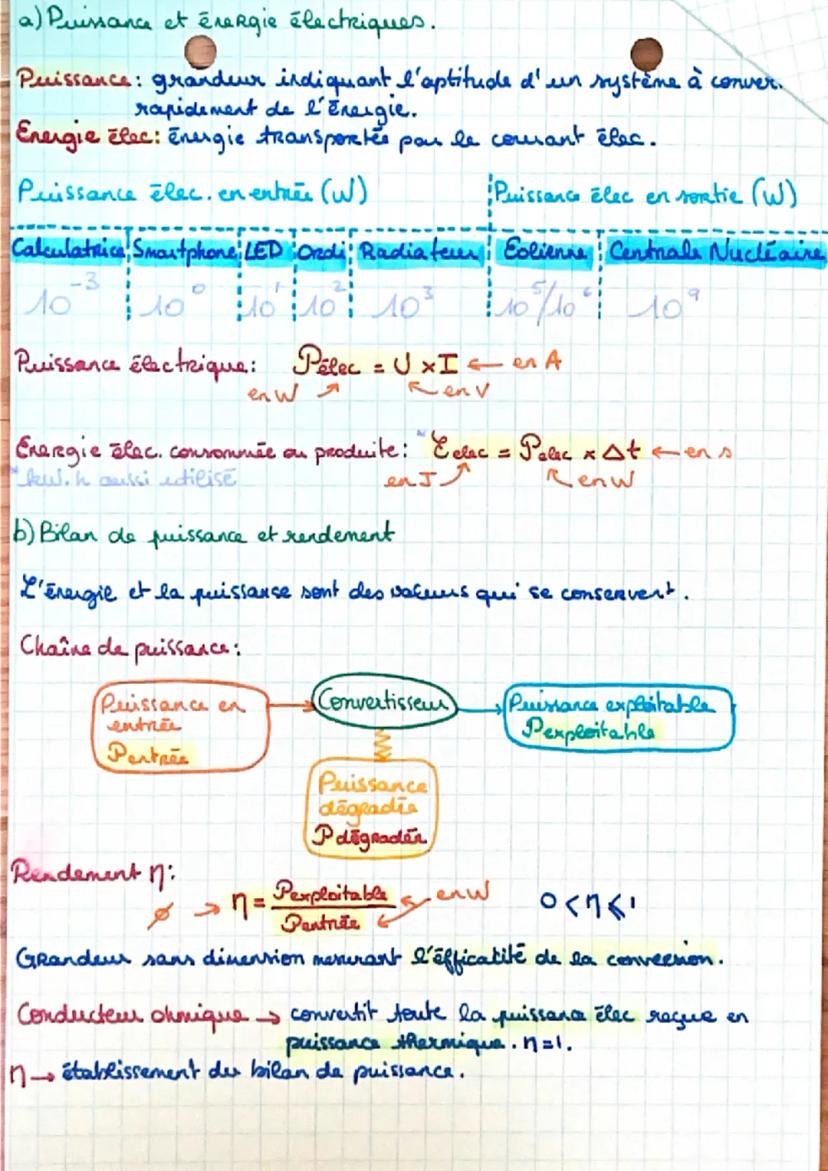 a) Puissance et énergie électriques.
Puissance : grandeur indiquant l'aptitude d'un système à conver.
rapidement de l'énergie.
Energie élec : énergie transportée par le courant élec.
Puissance élec. en entrée (W) Puissance élec en sortie (W)
Calculatrice Smartphone LED Ordi Radiateur Eolienne Centrale Nucléaire
10⁻³ 10⁰ 10¹ 10² 10³ 10⁵/10⁶ 10⁹
Puissance électrique : Pélec = U x I ← en A
en W en V
Energie élec. consommée ou produite : * Eelec = Pelec x Δt ← en s
*kW.h aussi utilisé en J en W
b) Bilan de puissance et rendement
L'énergie et la puissance sont des valeurs qui se conservent.
Chaîne de puissance :
Puissance en Convertisseur Puissance exploitable
entrée Pexploitable
Pentrée
Puissance
dégradée
Pdégradée
Rendement η :
ø → η = Pexploitable en W 0 < η ⩽ 1
Pentrée
Grandeur sans dimension mesurant l'éfficatité de la conversion.
Conducteur ohmique → convertit toute la puissance élec reçue en
puissance thermique. η = 1.
η → établissement du bilan de puissance.